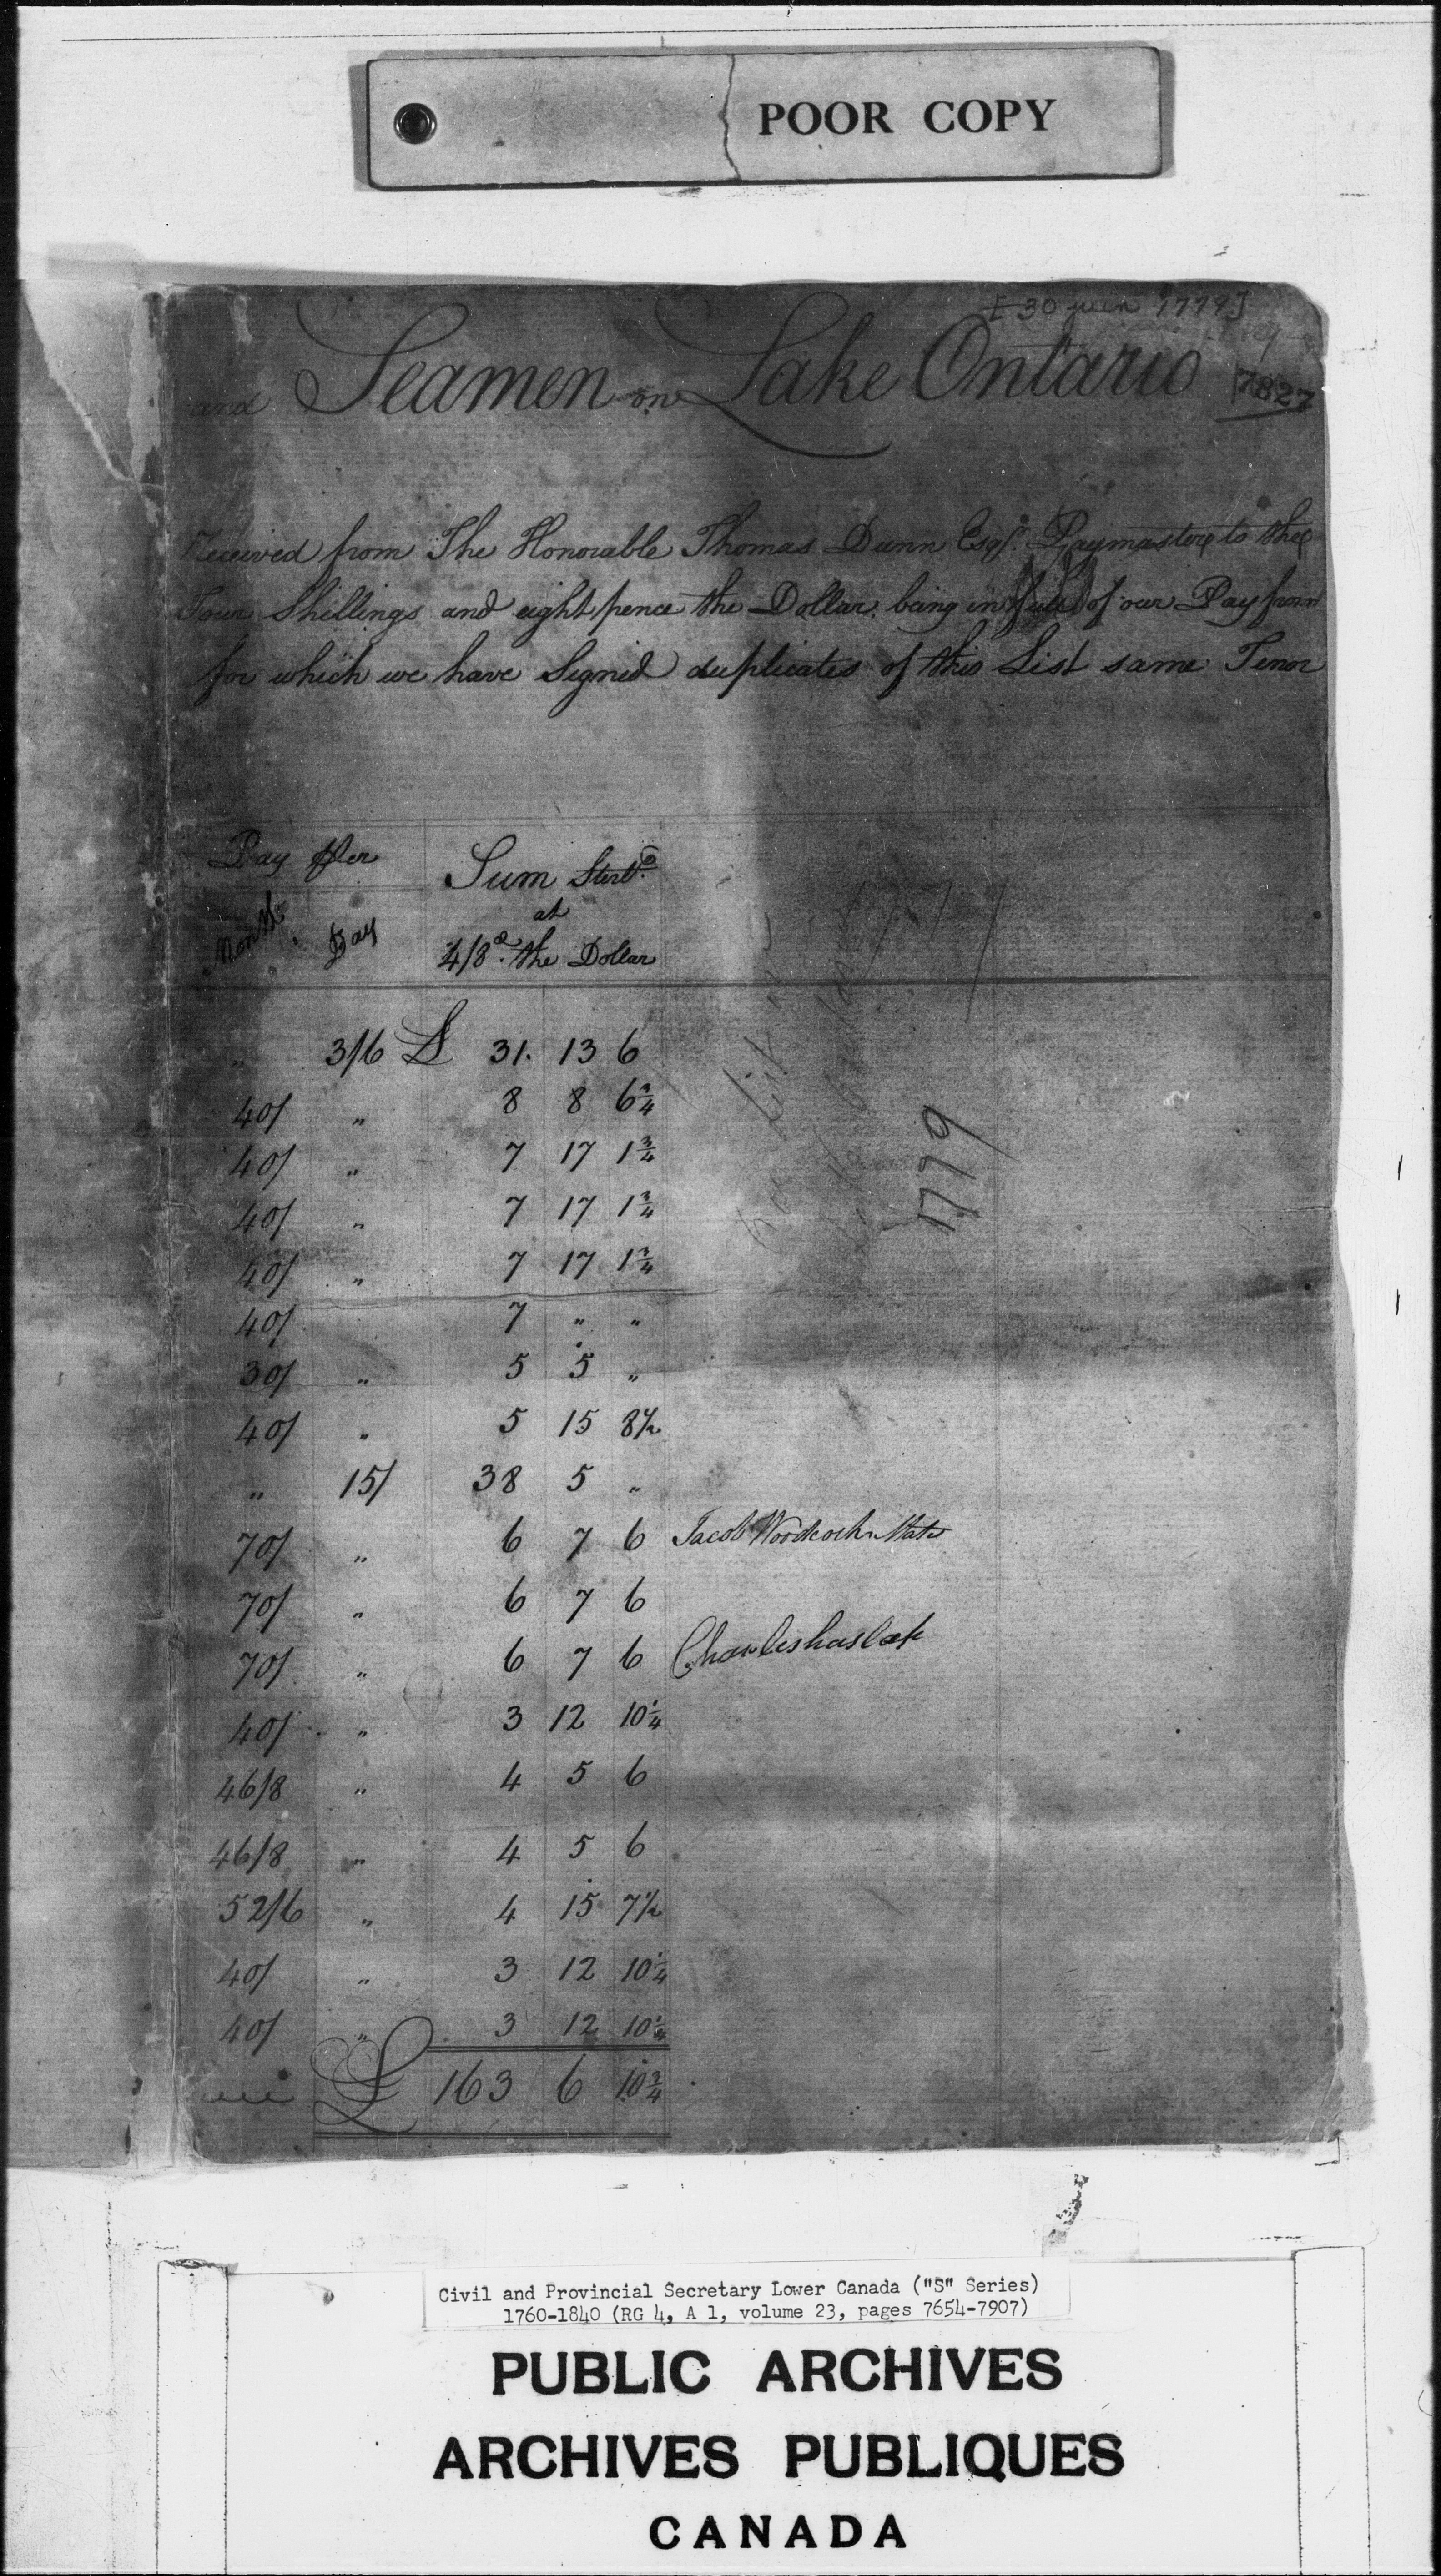 POOR COPY
[30 juin 1779]
and Seamen on Lake Ontario
7827
Received from The Honorable Thomas Dunn Esqr. Paymaster to the
Four Shillings and eight pence the Dollar being in full of our Pay from
for which we have Signed duplicates of this List same Tenor
Pay per
Sum Sterlg.
Month. Day
at
4/8d. the Dollar
" 3/6 £ 31. 13 6
40/ " 8 8 6¾
40/ " 7 17 1¾
40/ " 7 17 1¾
40/ " 7 17 1¾
40/ 7 " "
30/ " 5 5 "
40/ " 5 15 8½
" 15/ 38 5 "
70/ " 6 7 6 Jacob Woodcock Mate
70/ " 6 7 6
70/ " 6 7 6 Charles haslop
40/ " 3 12 10¼
46/8 " 4 5 6
46/8 " 4 5 6
52/6 " 4 15 7½
40/ " 3 12 10¼
40/ " 3 12 10¼
£ 163 6 10¾
1779
Civil and Provincial Secretary Lower Canada ("S" Series)
1760-1840 (RG 4, A 1, volume 23, pages 7654-7907)
PUBLIC ARCHIVES
ARCHIVES PUBLIQUES
CANADA